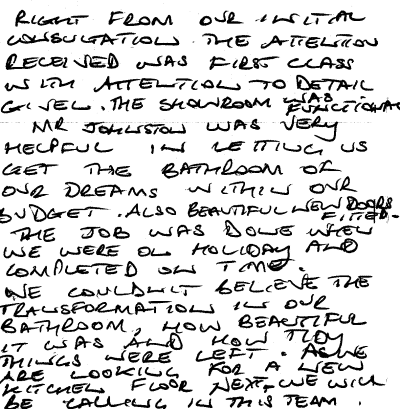 RIGHT FROM OUR INITIAL
CONSULTATION THE ATTENTION
RECEIVED WAS FIRST CLASS
WITH ATTENTION TO DETAIL
GIVEN. THE SHOWROOM WAS FUNCTIONAL
MR JOHNSTON WAS VERY
HELPFUL IN LETTING US
GET THE BATHROOM OF
OUR DREAMS WITHIN OUR
BUDGET. ALSO BEAUTIFUL NEW DOORS FITTED.
THE JOB WAS DONE WHEN
WE WERE ON HOLIDAY AND
COMPLETED ON TIME.
WE COULDN'T BELIEVE THE
TRANSFORMATION IN OUR
BATHROOM, HOW BEAUTIFUL
IT WAS AND HOW TIDY
THINGS WERE LEFT. AS WE
ARE LOOKING FOR A NEW
KITCHEN FLOOR NEXT, WE WILL
BE CALLING IN THIS TEAM.